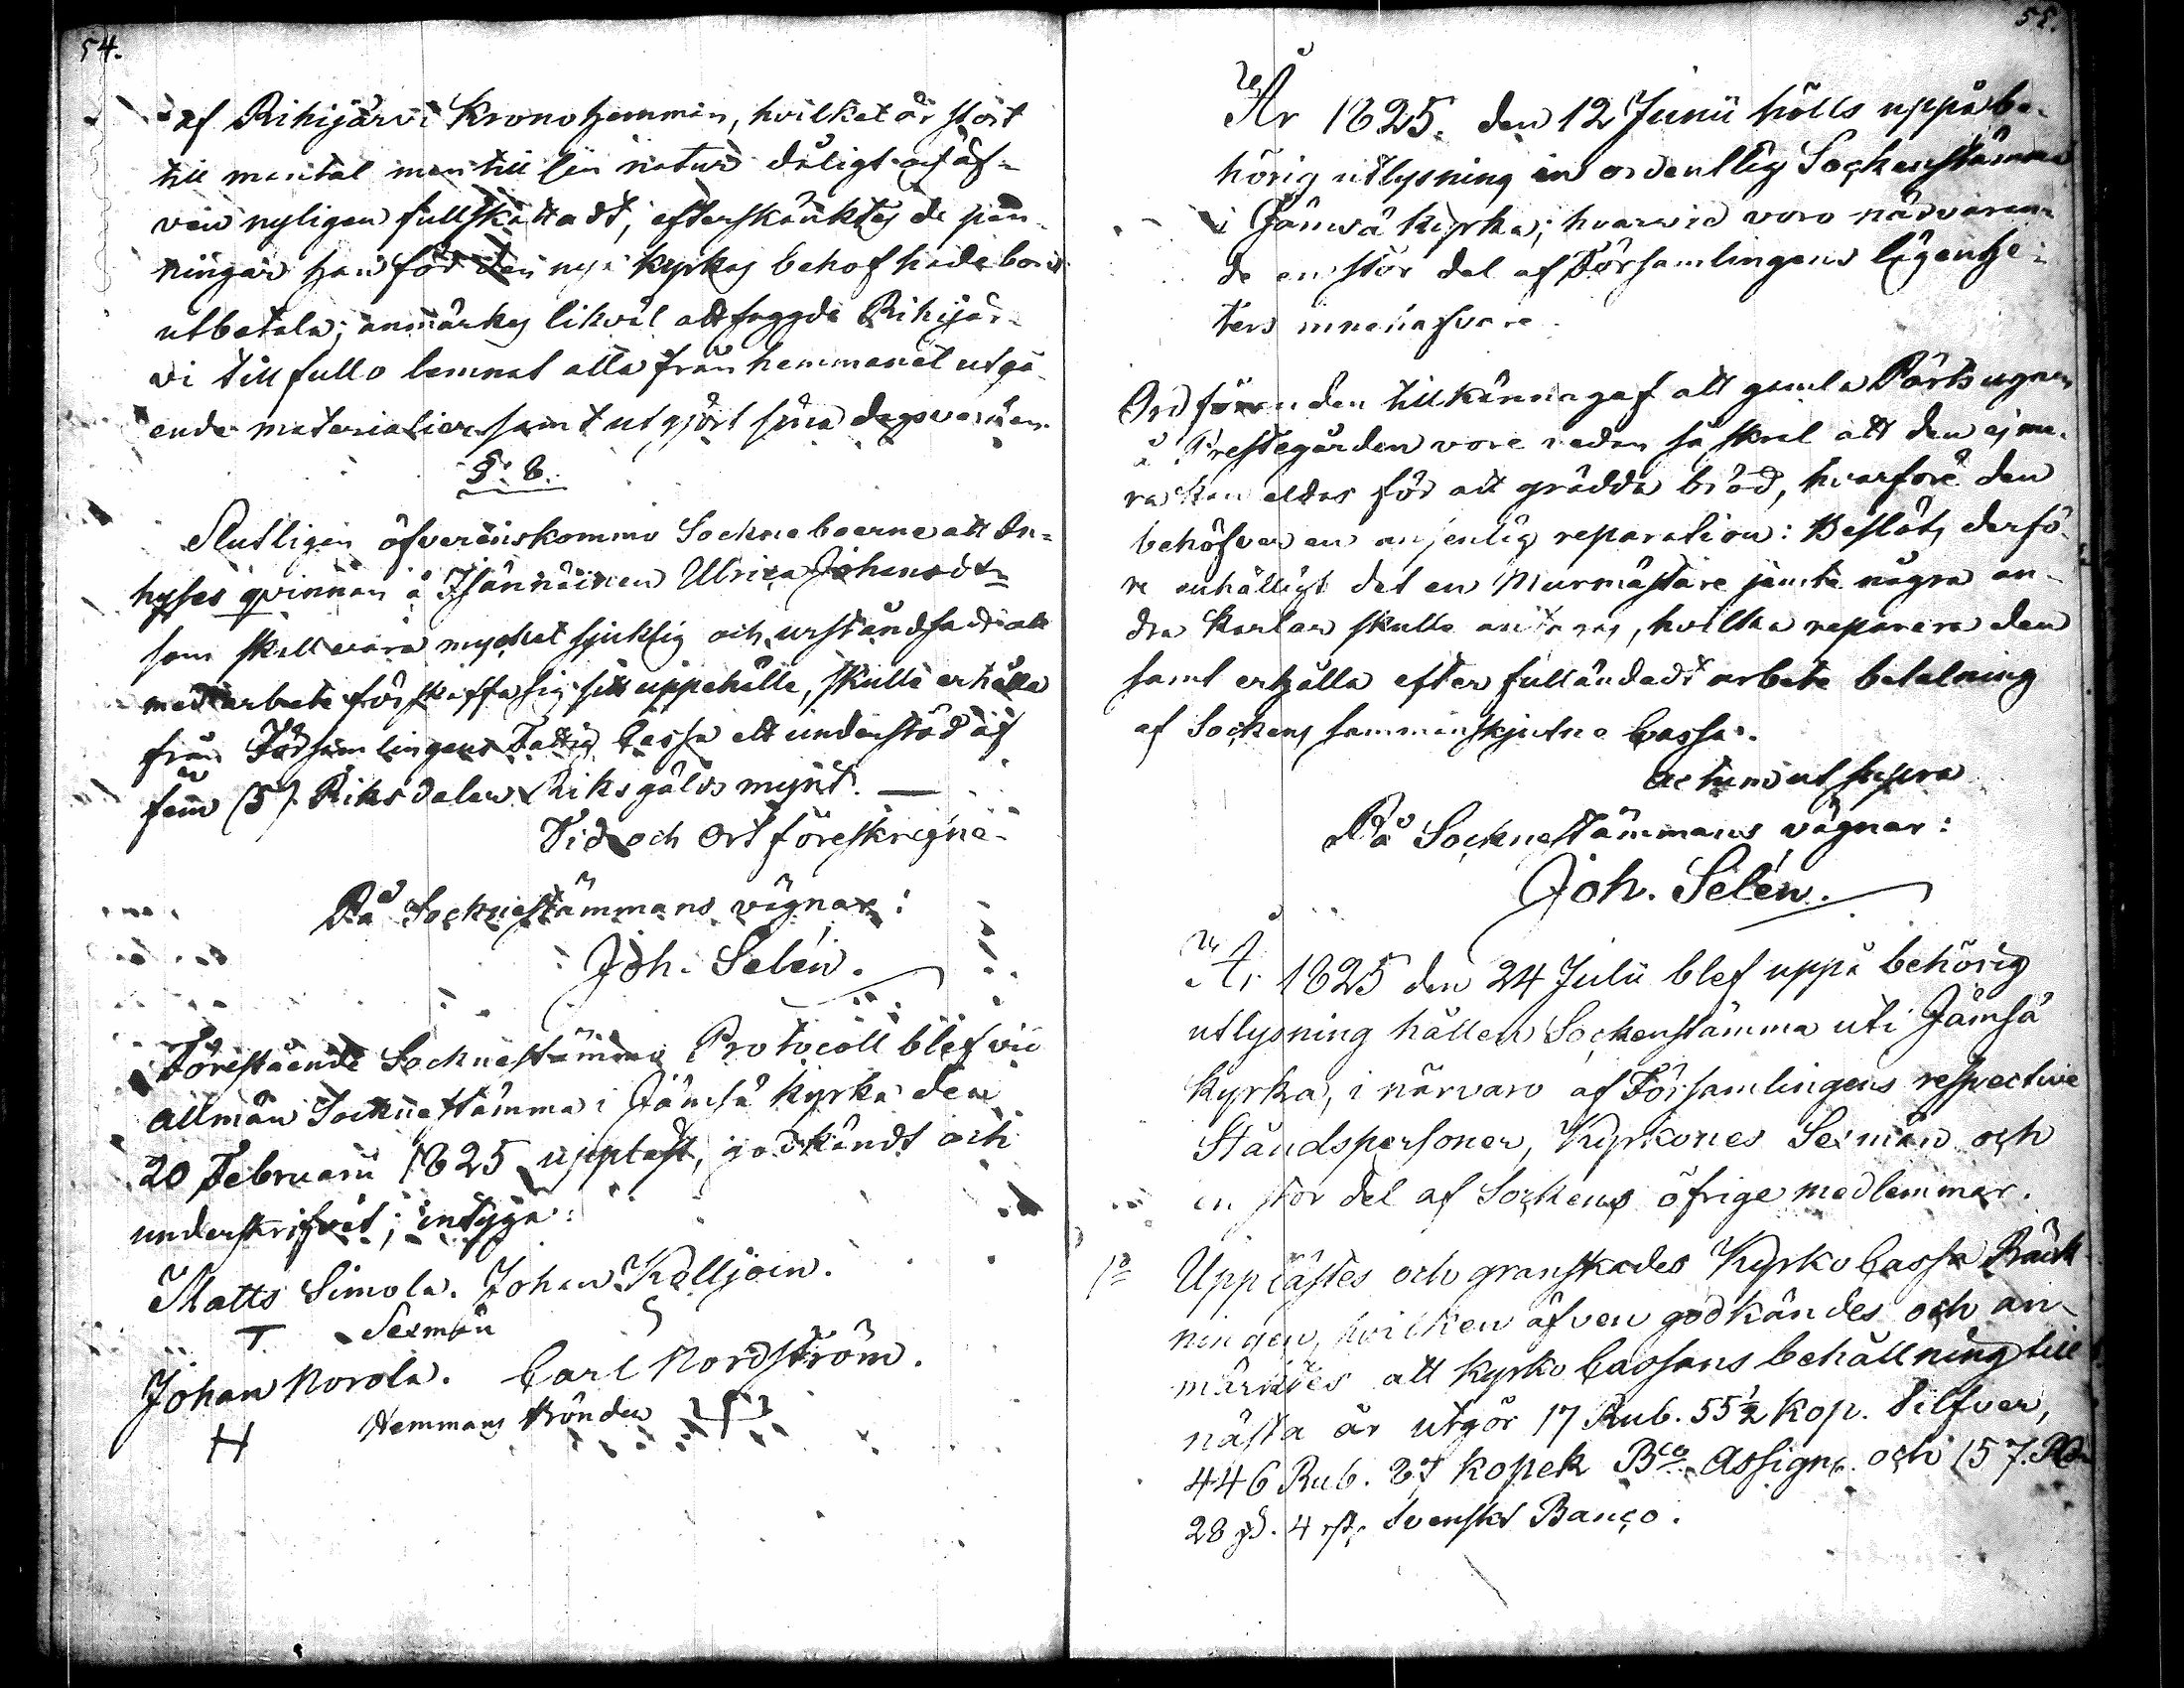 54.
af Rihijärvi Kronohemman, hvilket är stört
till mantal men till sin natur dåligt och äf-
ven nyligen fullskattadt, efterskänktes de pen-
ningar han för den nya Kyrkas behof hade bordt
utbetala; anmärkes likväl att sagde Rihijär-
vi till fullo lemnat alla från hemmanet utgå-
ende materialier samt utgjort sina dagsverken.
§. 8.
Slutligen öfverenskommo Socknеboerne att In-
hyses qvinnan å Isännäinen Ulrica Johansdr
som skall vara mycket sjuklig och urståndsatt att
med arbete förskaffa sig sitt uppehälle, skulle erhålla
från Församlingens Fattig Cassa ett understöd af
fem (5) Riksdaler Riksgälds mynt. —
Tid och Ort föreskrefne.
På Socknestämmans vägnar:
Joh. Selén.
Förestående Socknestämmo Protocoll blef vid
allmän Socknestämma i Jämsä Kyrka den
20 Februarii 1825 uppläst, godkändt och
underskrifvet; intyga:
Matts Simola. Johan Källjoin.
T Sexmän
Johan Norola. Carl Nordström.
H Hemmans Bönder
55.
År 1825. den 12 Junii hölls uppå be-
hörig utlysning en ordentlig Sockenstämma
i Jämsä Kyrka; hvarvid voro närvaran-
de en stor del af Församlingens lägenhe-
ters innehafvare.
Ordföranden tillkännagaf att gamla Pörtsugnen
å Prestegården vore redan så skral att den ej me-
ra kan eldas för att grädda bröd, hvarföre den
behöfver en anseenlig reparation: Beslöts derfö-
re enhälligt det en Murmästare jämte några an-
dra Karlar skulle antagas, hvilka reparera den
samt erhålla efter fulländadt arbete betalning
af Sockens sammanskjutne Cassa.
Actum ut supra
På Socknestämmans vägnar:
Joh. Selén.
År 1825 den 24 Julii blef uppå behörig
utlysning hållen Sockenstämma uti Jämsä
Kyrka, i närvaro af Församlingens respective
Ståndspersoner, Kyrkones Sexmän och
en stor del af Sockens öfrige medlemmar.
1o Upplästes och granskades Kyrko Cassa Räk-
ningen, hvilken äfven godkändes och an-
märktes att Kyrko Cassans behållning till
nästa år utgör 17 Rub. 55 1/2 Kop. Silfver,
446 Rub. 27 Kopek Bco Assign. och 157. RD
28 s. 4 rst. Svenskt Banco.